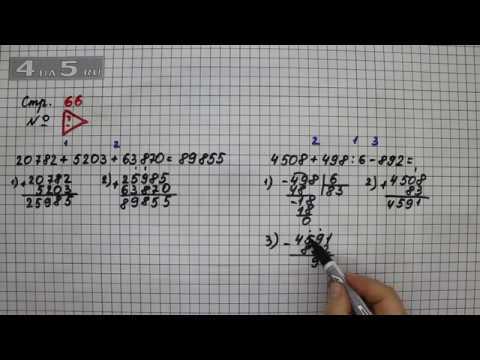 4 НА 5.RU
Стр. 66
№
1 2
20782 + 5203 + 63870 = 89855
1) + 20782
5203
25985
2) + 25985
63870
89855
2 1 3
4508 + 498 : 6 - 892 =
1) - 498 | 6
48 83
- 18
18
0
2) + 4508
83
4591
3) - 4591